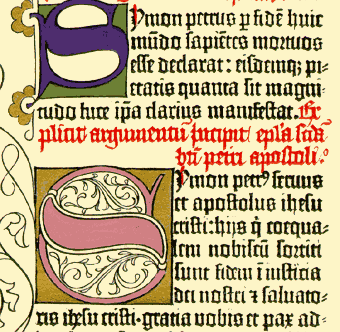 Symon petrus ꝑ fidē huic
mūdo sapiētes mortuos
esse declarat : eisdemqꝫ pi-
etatis quanta sit magni-
tudo luce ip̄a clarius manifestat. Ex
plicit argumentū Incipit epl̄a sc̄da
bt̄i petri apostoli.
Symon petrꝰ servus
et apostolus ihesu
cristi: hijs q̄ coequa-
lem nobiscū sortiti
sunt fidem ī iusticia
dei nostri ⁊ salvato-
ris ihesu cristi. gratia vobis et pax ad-